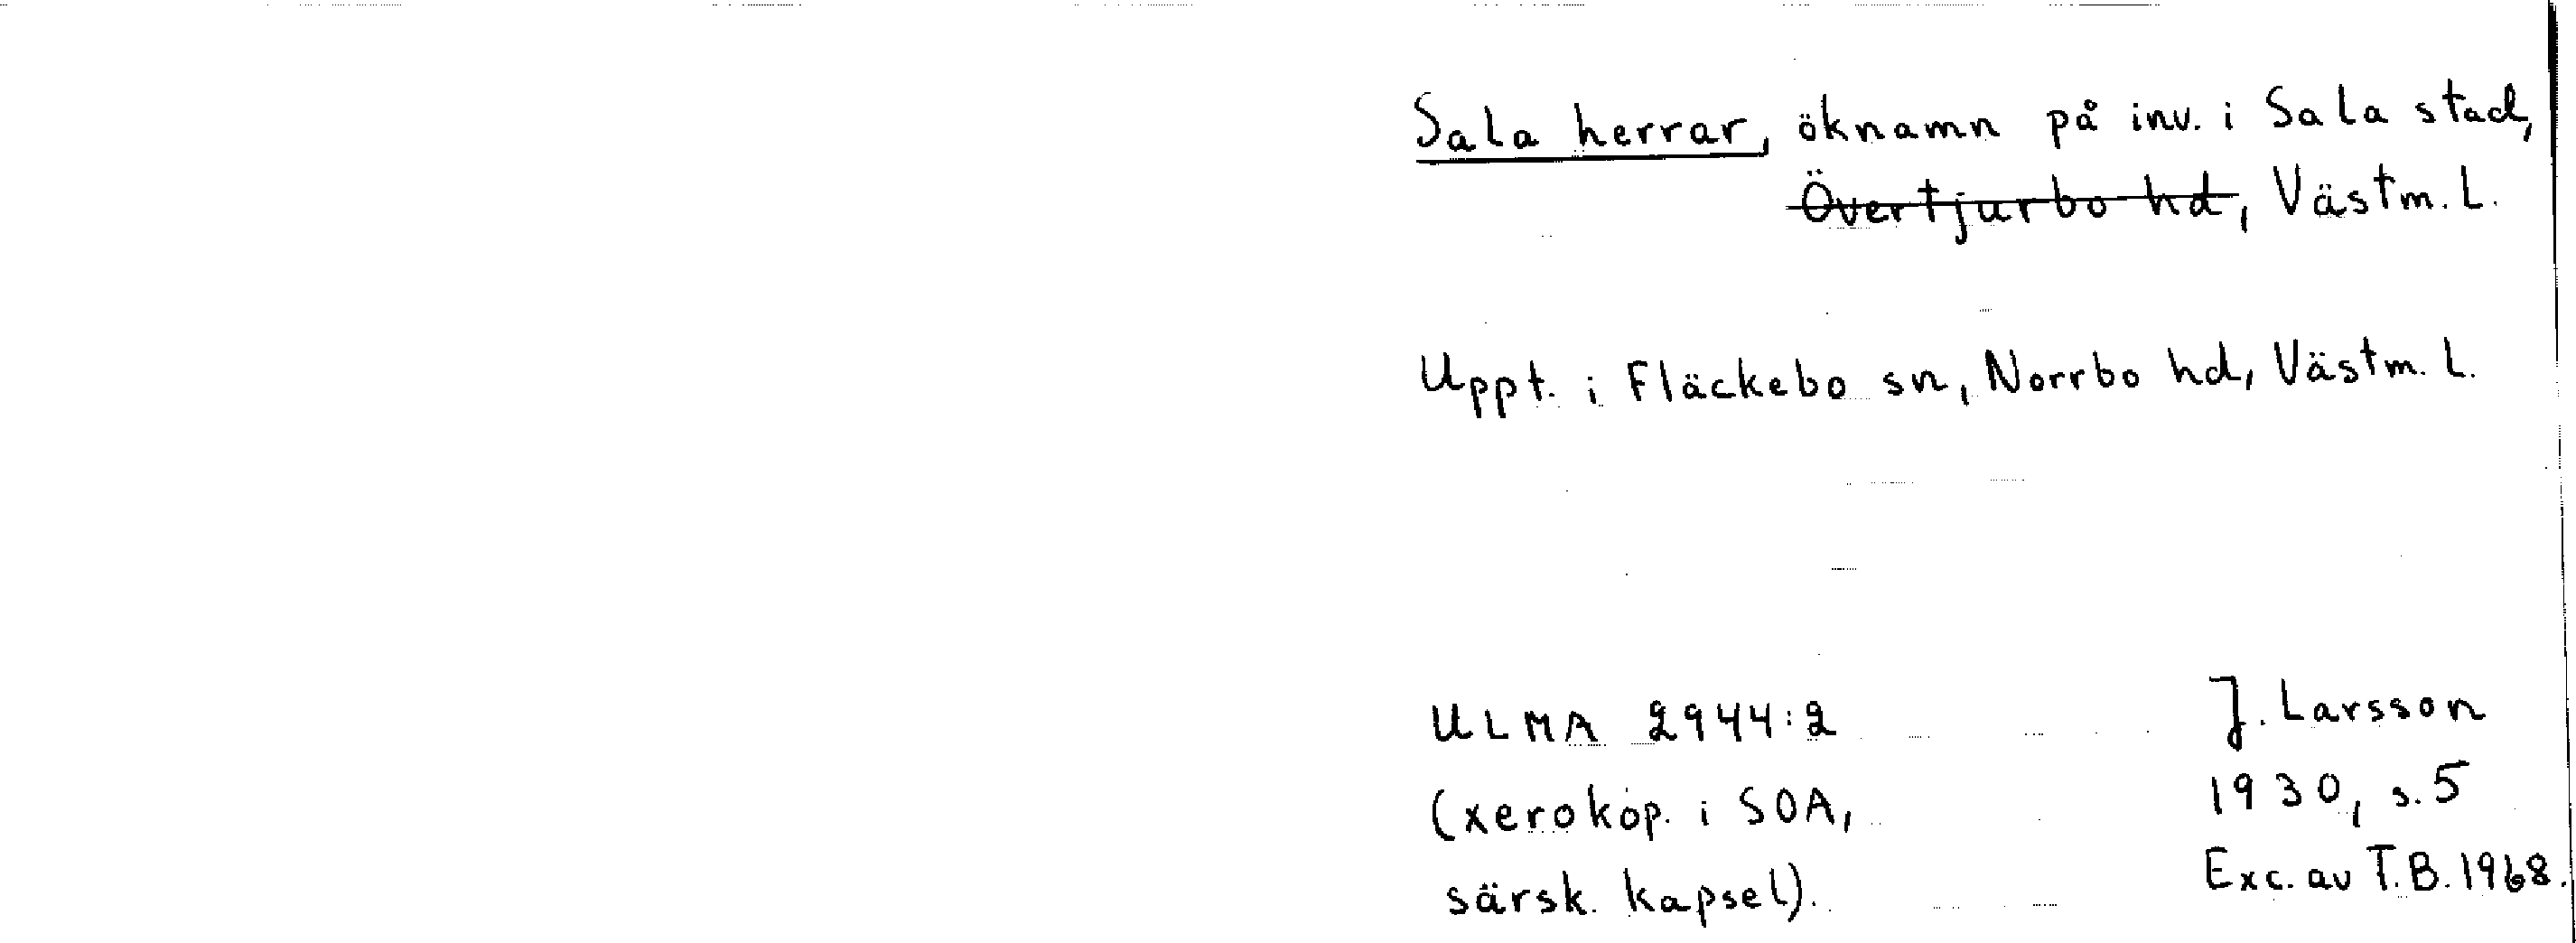 Sala herrar, öknamn på inv. i Sala stad,
Övertjurbo hd, Västm. L.
Uppt. i Fläckebo sn, Norrbo hd, Västm. L.
ULMA 2944:2
(xerokop. i SOA,
särsk. kapsel).
J. Larsson
1930, s. 5
Exc. av T.B. 1968.